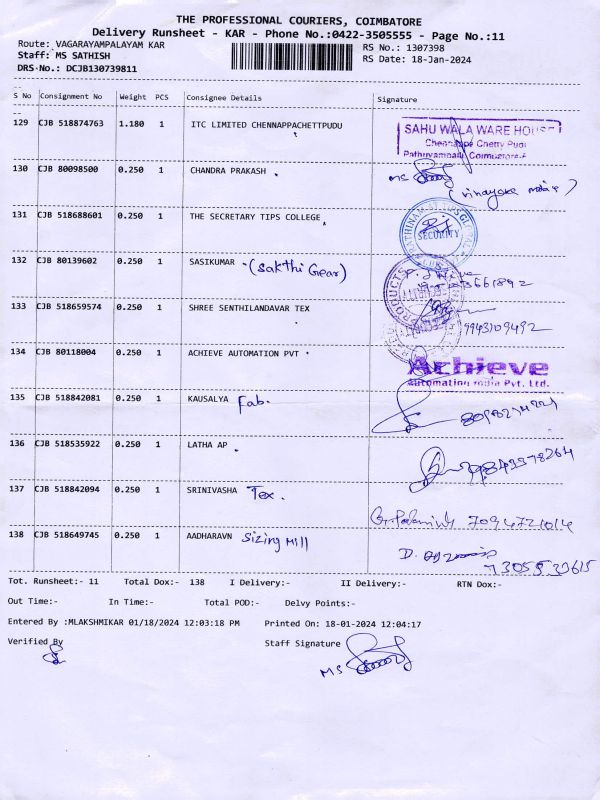 THE PROFESSIONAL COURIERS, COIMBATORE
Delivery Runsheet - KAR - Phone No.:0422-3505555 - Page No.:11
Route: VAGARAYAMPALAYAM KAR RS No.: 1307398
Staff: MS SATHISH RS Date: 18-Jan-2024
DRS-No.: DCJB130739811
S No Consignment No Weight PCS Consignee Details Signature
129 CJB 518874763 1.180 1 ITC LIMITED CHENNAPPACHETTPUDU
SAHU WALA WARE HOUSE
Chennappa Chetty Pudi
130 CJB 80098500 0.250 1 CHANDRA PRAKASH MS
131 CJB 518688601 0.250 1 THE SECRETARY TIPS COLLEGE
SECURITY
132 CJB 80139602 0.250 1 SASIKUMAR (Sakthi Gear)
PRODUCTS
133 CJB 518659574 0.250 1 SHREE SENTHILANDAVAR TEX
9943109492
134 CJB 80118004 0.250 1 ACHIEVE AUTOMATION PVT
Achieve
Automation India Pvt. Ltd.
135 CJB 518842081 0.250 1 KAUSALYA Fab.
136 CJB 518535922 0.250 1 LATHA AP
137 CJB 518842094 0.250 1 SRINIVASHA Tex.
7094721014
138 CJB 518649745 0.250 1 AADHARAVN Sizing Mill
Tot. Runsheet:- 11 Total Dox:- 138 I Delivery:- II Delivery:- RTN Dox:-
Out Time:- In Time:- Total POD:- Delvy Points:-
Entered By :MLAKSHMIKAR 01/18/2024 12:03:18 PM Printed On: 18-01-2024 12:04:17
Verified By Staff Signature
MS